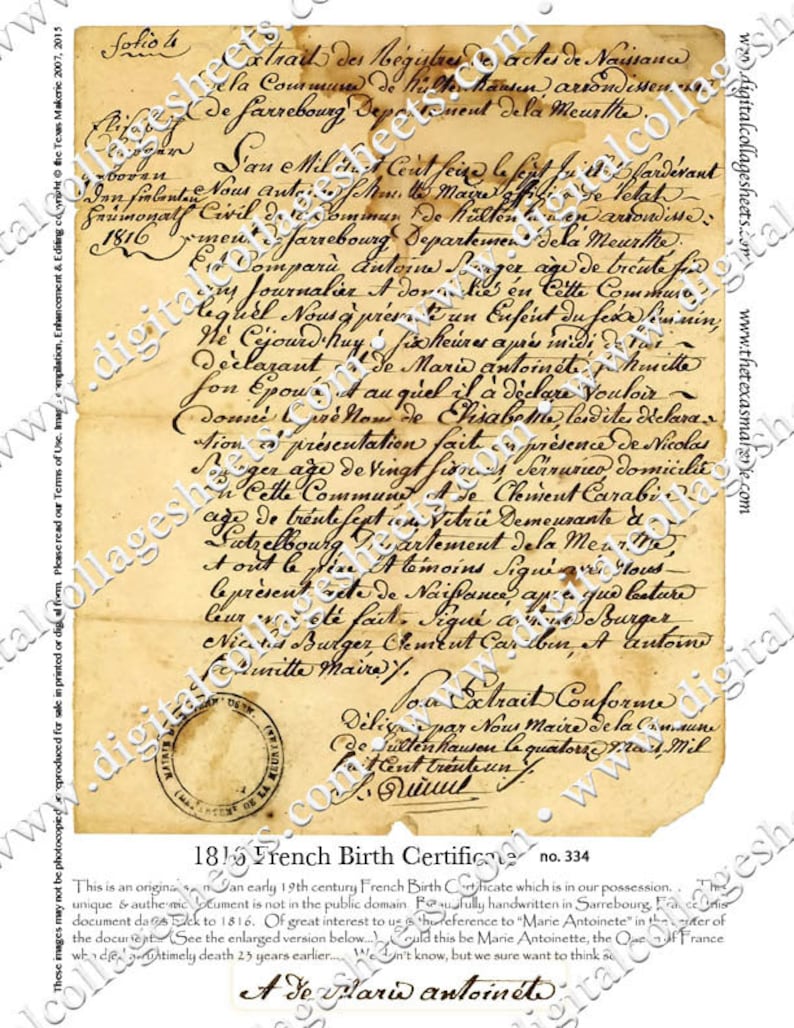 folio 4
Extrait des Régistres des actes de Naissance
de la Commune de hültenhausen, arrondissement
de Sarrebourg Departement de la Meurthe.
Elisabeth
Burger
geboren
den siebenten
heumonath
1816
L'an Mil huit Cent seize le sept Juillet, pardévant
Nous antoine Schmitte Maire officier de l'état
Civil de la Commune de hültenhausen arrondisse=
ment de Sarrebourg Departement de la Meurthe.
Est Comparü antoine Burger agé de trénte six
ans Journalier & domicilié én Cétte Commune
lequel Nous à présenté un Enfent du sexe féminin,
Né Céjourd'huy à six heures après midi de lui
déclarant & de Marie antoinéte Schmitte
son Epousé & au quél il à déclaré Vouloir
donné le pré Nom de Elisabethe, lesdites déclara-
tion & présentation fait en présence de Nicolas
Burger age de vingt six ans, Sérrurier, domicilié
En Cétte Commune & de Clement Carabin
age de trénte sept ans Vitrié Demeurante à
Lutzelbourg Departement de la Meurthe,
& ont le père & témoins Signé avec Nous
le présent acte de Naissance après que lecture
leur a été fait. Signé antoine Burger
Nicolas Burger Clement Carabin, & antoine
Schmitte Maire ./.
Pour Extrait Conforme
Délivré par Nous Maire de la Commune
de hültenhausen le quatorze Mars Mil
huit Cent trénte un ./.
DE LA MEURTHE
1816 French Birth Certificate no. 334
This is an original scan of an early 19th century French Birth Certificate which is in our possession. . . This
unique & authentic document is not in the public domain. Beautifully handwritten in Sarrebourg, France this
document dates back to 1816. Of great interest to us is the reference to "Marie Antoinete" in the center of
the document. (See the enlarged version below...) Could this be Marie Antoinette, the Queen of France
who died an untimely death 23 years earlier.... We don't know, but we sure want to think so
& de Marie antoinéte
These images may not be photocopied or reproduced for sale in printed or digital form. Please read our Terms of Use. Image compilation, Enhancement & Editing copyright © the Texas Makerie 2007, 2015
www.digitalcollagesheets.com www.thetexasmakerie.com
www.digitalcollagesheets.com